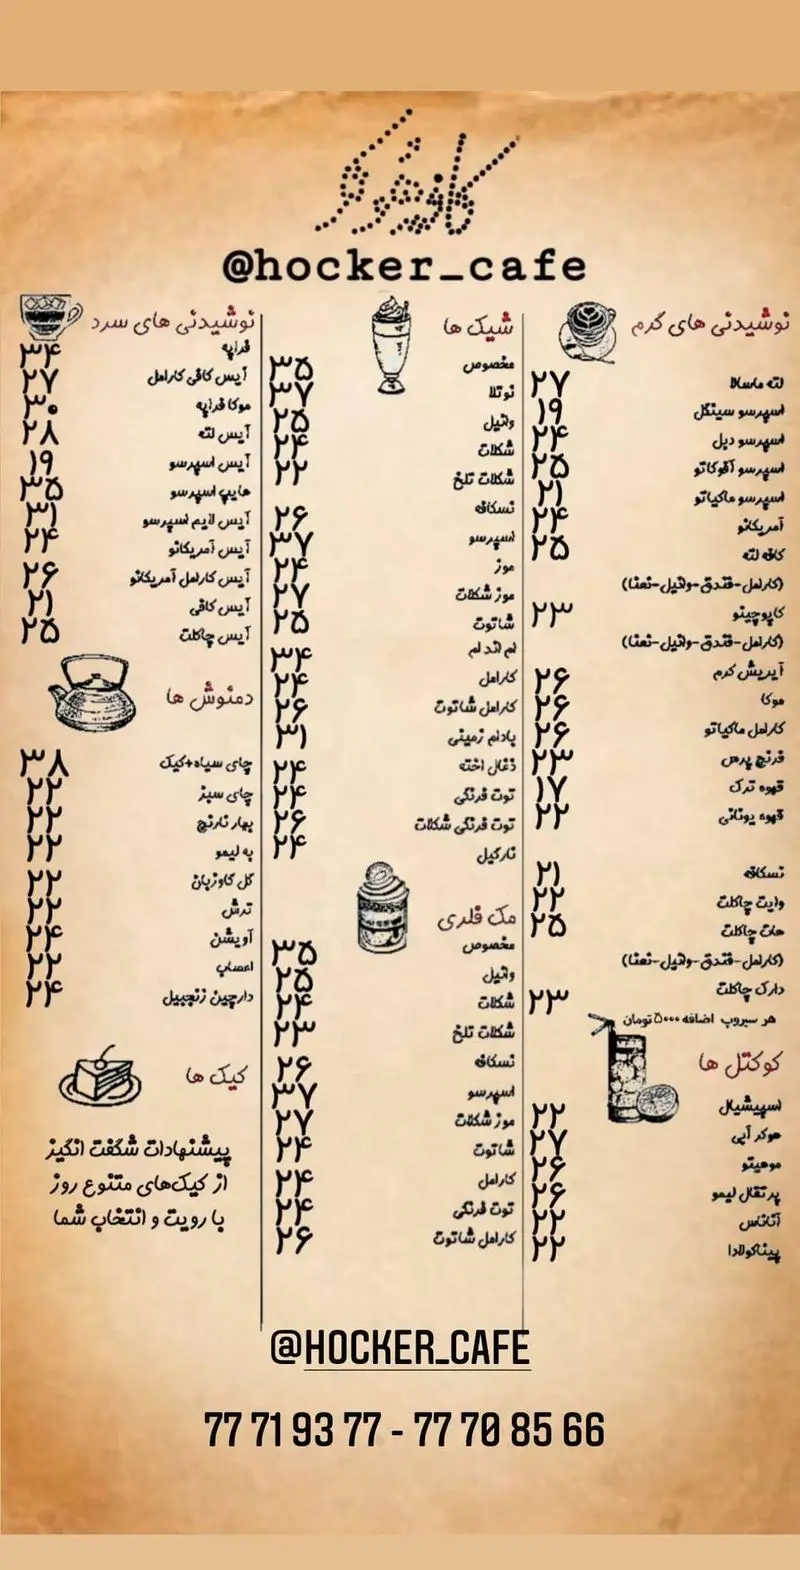 کافه هوکر
@hocker_cafe
نوشیدنی های گرم
لته ماسالا ۲۷
اسپرسو سینگل ۱۹
اسپرسو دبل ۲۴
اسپرسو آفوکاتو ۲۵
اسپرسو ماکیاتو ۲۱
آمریکانو ۲۴
کافه لته ۲۵
(کارامل-فندق-وانیل-نعنا)
کاپوچینو ۲۳
(کارامل-فندق-وانیل-نعنا)
آیریش کرم ۲۶
موکا ۲۶
کارامل ماکیاتو ۲۶
فرنچ پرس ۲۳
قهوه ترک ۱۷
قهوه یونانی ۲۲
نسکافه ۲۱
وایت چاکلت ۲۲
هات چاکلت ۲۵
(کارامل-فندق-وانیل-نعنا)
دارک چاکلت ۲۳
هر سیروپ اضافه ۵۰۰۰ تومان
کوکتل ها
اسپیشیال ۲۲
هوکر آبی ۲۷
موهیتو ۲۶
پرتقال لیمو ۲۶
آناناس ۲۲
پیناکولادا ۲۲
شیک ها
مخصوص ۳۵
نوتلا ۳۷
وانیل ۲۵
شکلات ۲۴
شکلات تلخ ۲۲
نسکافه ۲۶
اسپرسو ۳۷
موز ۲۴
موز شکلات ۲۷
شاتوت ۲۵
ام اند ام ۳۴
کارامل ۲۴
کارامل شاتوت ۲۶
بادام زمینی ۳۱
ذغال اخته ۲۴
توت فرنگی ۲۴
توت فرنگی شکلات ۲۶
نارگیل ۲۴
مک فلری
مخصوص ۳۵
وانیل ۲۵
شکلات ۲۴
شکلات تلخ ۲۳
نسکافه ۲۶
اسپرسو ۳۷
موز شکلات ۲۷
شاتوت ۲۴
کارامل ۲۴
توت فرنگی ۲۴
کارامل شاتوت ۲۶
نوشیدنی های سرد
فراپه ۳۴
آیس کافی کارامل ۲۷
موکا فراپه ۳۰
آیس لته ۲۸
آیس اسپرسو ۱۹
هایپ اسپرسو ۳۵
آیس لایم اسپرسو ۳۱
آیس آمریکانو ۲۴
آیس کارامل آمریکانو ۲۶
آیس کافی ۲۱
آیس چاکلت ۲۵
دمنوش ها
چای سیاه+کیک ۳۸
چای سبز ۲۲
بهار نارنج ۲۲
به لیمو ۲۲
گل گاوزبان ۲۲
ترش ۲۲
آویشن ۲۴
اعصاب ۲۲
دارچین زنجبیل ۲۴
کیک ها
پیشنهادات شگفت انگیز
از کیک‌های متنوع روز
با رویت و انتخاب شما
@HOCKER_CAFE
77 71 93 77 - 77 70 85 66